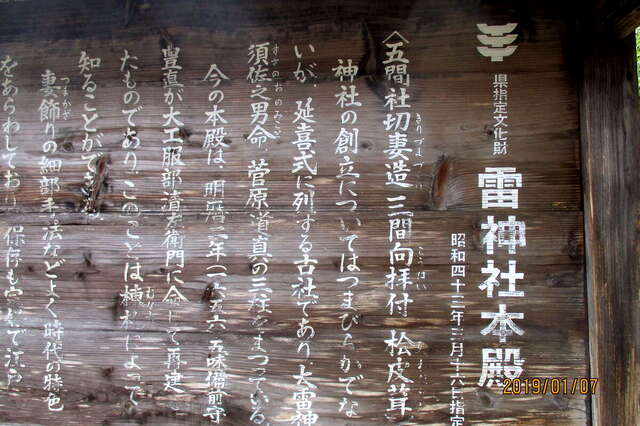 県指定文化財
雷神社本殿
昭和四十二年三月十六日指定
〈五間社切妻造 三間向拝付 桧皮葺
きりづまづくり
神社の創立についてはつまびらかでな
いが、延喜式に列する古社であり、大雷神
須佐之男命、菅原道真の三柱をまつっている。
すさのおのみこと
今の本殿は、明暦二年(一六五六)五味備前守
豊直が大工服部清左衛門に命じて再建し
たものであり、このことは棟札によって
むなふだ
知ることができる。
妻飾りの細部手法などよく時代の特色
つまかざ
をあらわしており、保存も完全で江戸
2019/01/07